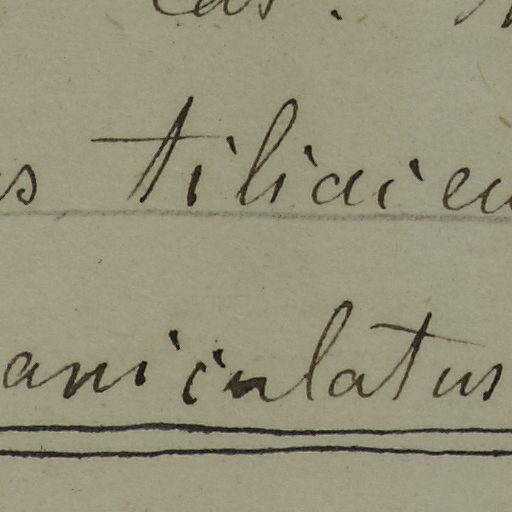 s tiliaceu
aniculatus